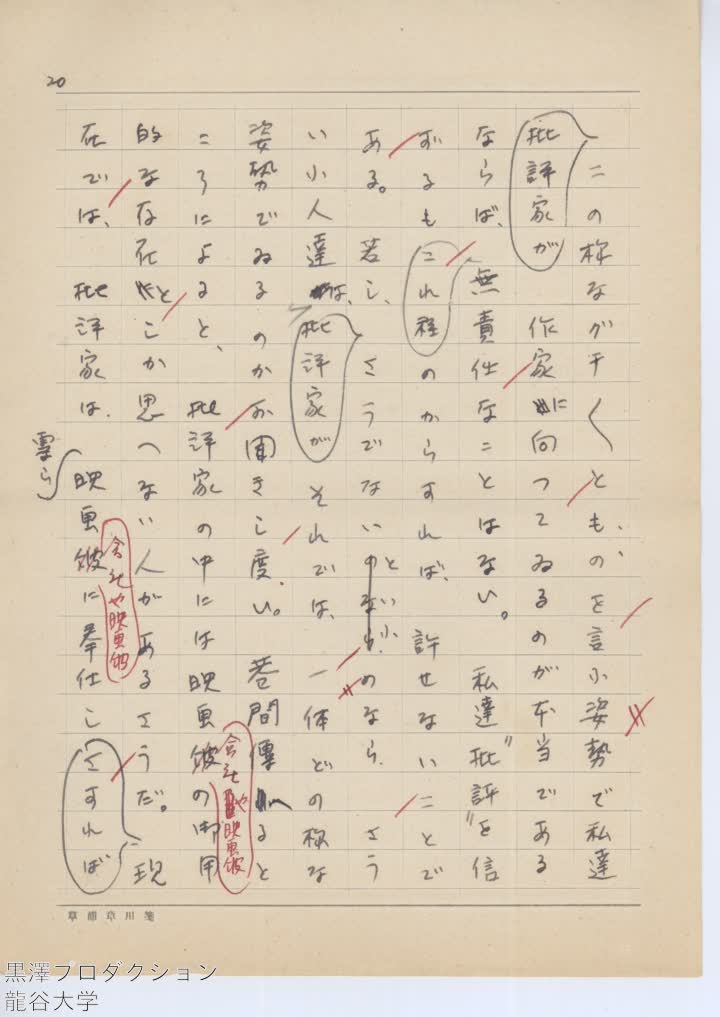 20
この様なグチくともの、を言ふ姿勢で私達
批評家が
作家に向つてゐるのが本当である
ならば、無責任なことはない。私達"批評"を信
ずるも
これ程
のからすれば、許せないことで
ある。若し、さうでないと
いふ
のなら、さう
い小人達は、
批評家が
それでは、一体どの様な
姿勢でゐるのかお聞きし度い。巷間伝るとこ
ころによると、批評家の中には映画
会社や映画
の御用
的な存在としか思へない人があるさうだ。現
在では、批評家は、映画
会社や映画
に奉仕し
さすれば
草 川 箋
黒澤プロダクション
龍谷大学